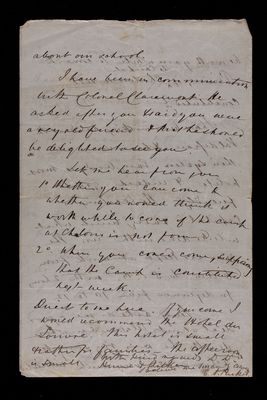 about our school.
I have been in communication
with Colonel Claremont. He
asked after you & said you were
a very old friend & that he should
be delighted to see you
Let me hear from you
1º whether you can come &
whether you would think it
work while to come if the camp
at Chalons is not form
2º when you could come supposing
that the Camp is constituted
next week.
Direct to me here. If you come I
would recommend the Hotel du
Louvre. This hotel is small
rather for families. The
is small